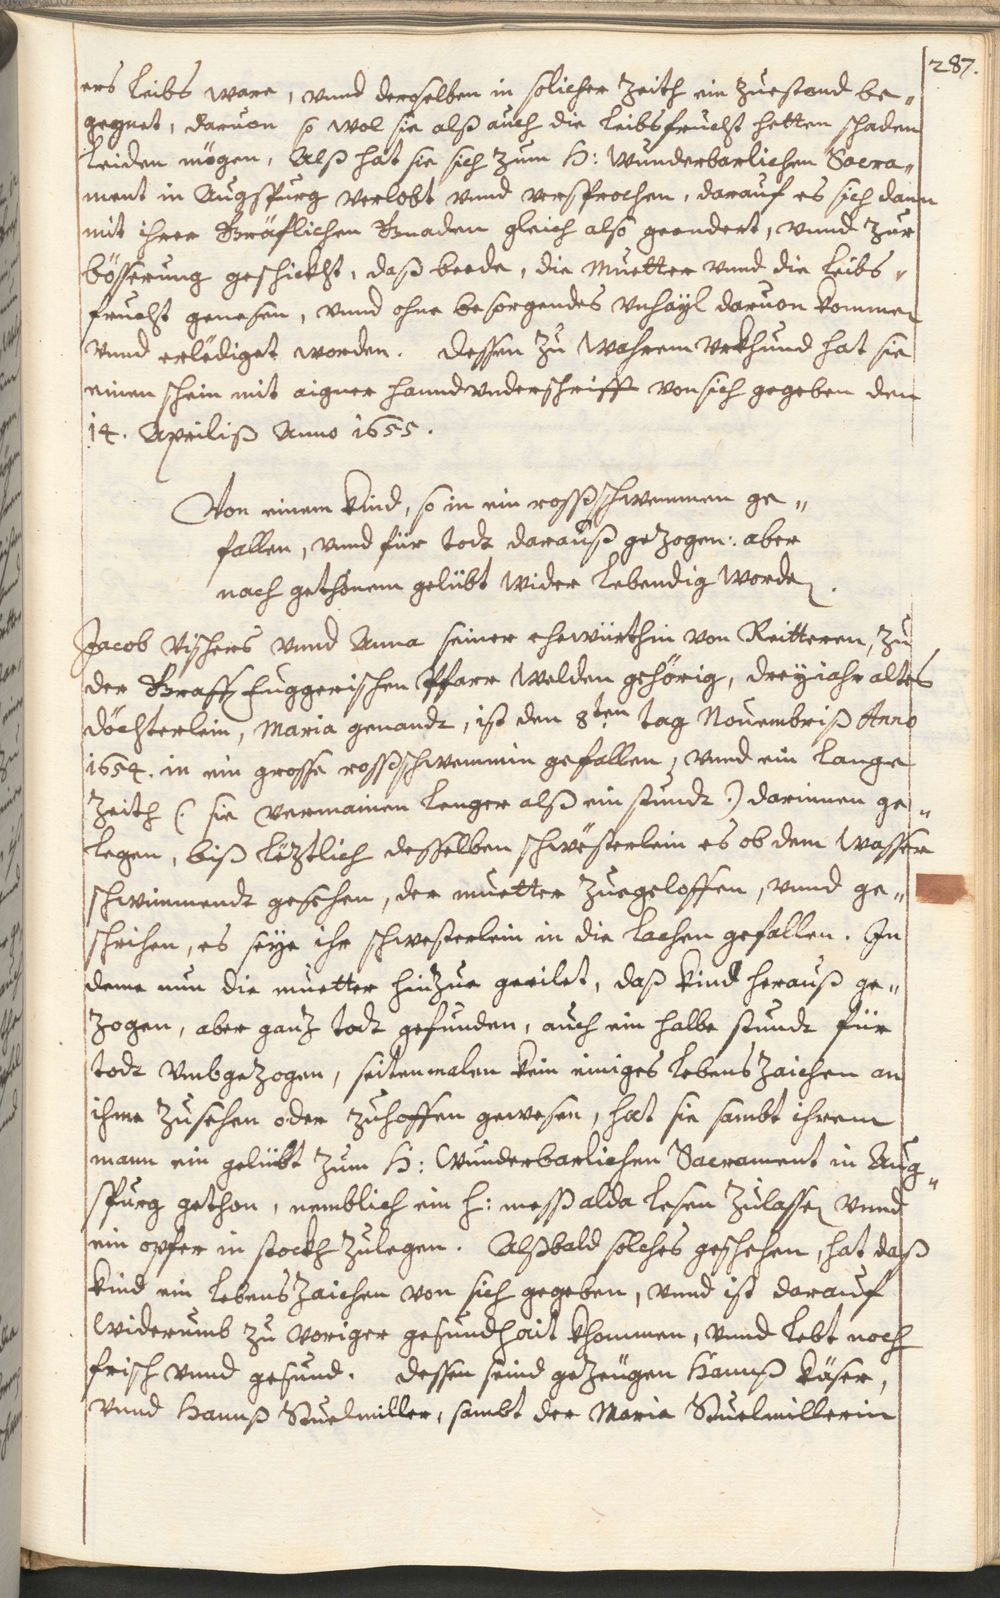 287.
ers leibs ware, vnnd deroselben in solicher Zeith ein Zuestand be„
gegnet, daruon so wol sie alß auch die leibsfrucht hetten schaden
leiden mögen, Alß hat sie sich Zum H: Wunderbarlichen Sacra„
ment in Augspurg verlobt vnnd versprochen, darauf es sich dann
mit ihrer Gräflichen Gnaden gleich also geendert, vnnd Zur
bösserung geschickht, daß beede, die Muetter vnnd die leibs„
frucht genesen, vnnd ohne besorgendes vnhäyl daruon kommen
vnnd erlediget worden. Dessen Zu Wahrem vrkhund hat sie
einen schein mit aigner Hanndvnderschrifft von sich gegeben den
14. Apriliß Anno 1655.
Von einem Kind, so in ein rosßschwemmen ge„
fallen, vnnd für todt darauß gezogen: aber
nach gethonem gelübt wider lebendig worden.
Jacob Vischers vnnd Anna seiner ehewürthin von Reitteren, Zu
der Graff Fuggerischen Pfarr Welden gehörig, drey jahr altes
döchterlein, Maria genandt, ist den 8ten tag Nouembriß Anno
1654. in ein grosse rosßschwemmin gefallen, vnnd ein lange
Zeith (: sie vermainen lenger alß ein stundt :) darinnen ge„
legen, biß letztlich desselben schwesterlein es ob dem Wasser
schwimmendt gesehen, der muetter Zuegeloffen, vnnd ge„
schrihen, es seye ihr schwesterlein in die lachen gefallen. In
deme nun die muetter hinzue geeilet, daß Kind herauß ge„
Zogen, aber ganz todt gefunden, auch ein halbe stundt für
todt vmbgezogen, seitenmalen kein einiges lebenszaichen an
ihme Zusehen oder Zuhoffen gewesen, hat sie sambt ihrem
mann ein gelübt Zum H: Wunderbarlichen Sacrament in Aug„
spurg gethon, nemblich ein h: mesß alda lesen Zulassen vnnd
ein opfer in stockh Zulegen. Alßbald solches geschehen, hat daß
Kind ein lebenszaichen von sich gegeben, vnnd ist darauf
widerumb Zu voriger gesundhait khommen, vnnd lebt noch
frisch vnnd gesund. Dessen seind gezeugen Hannß Käser,
vnnd Hannß Stuelmiller, sambt der Maria Stuelmillerin